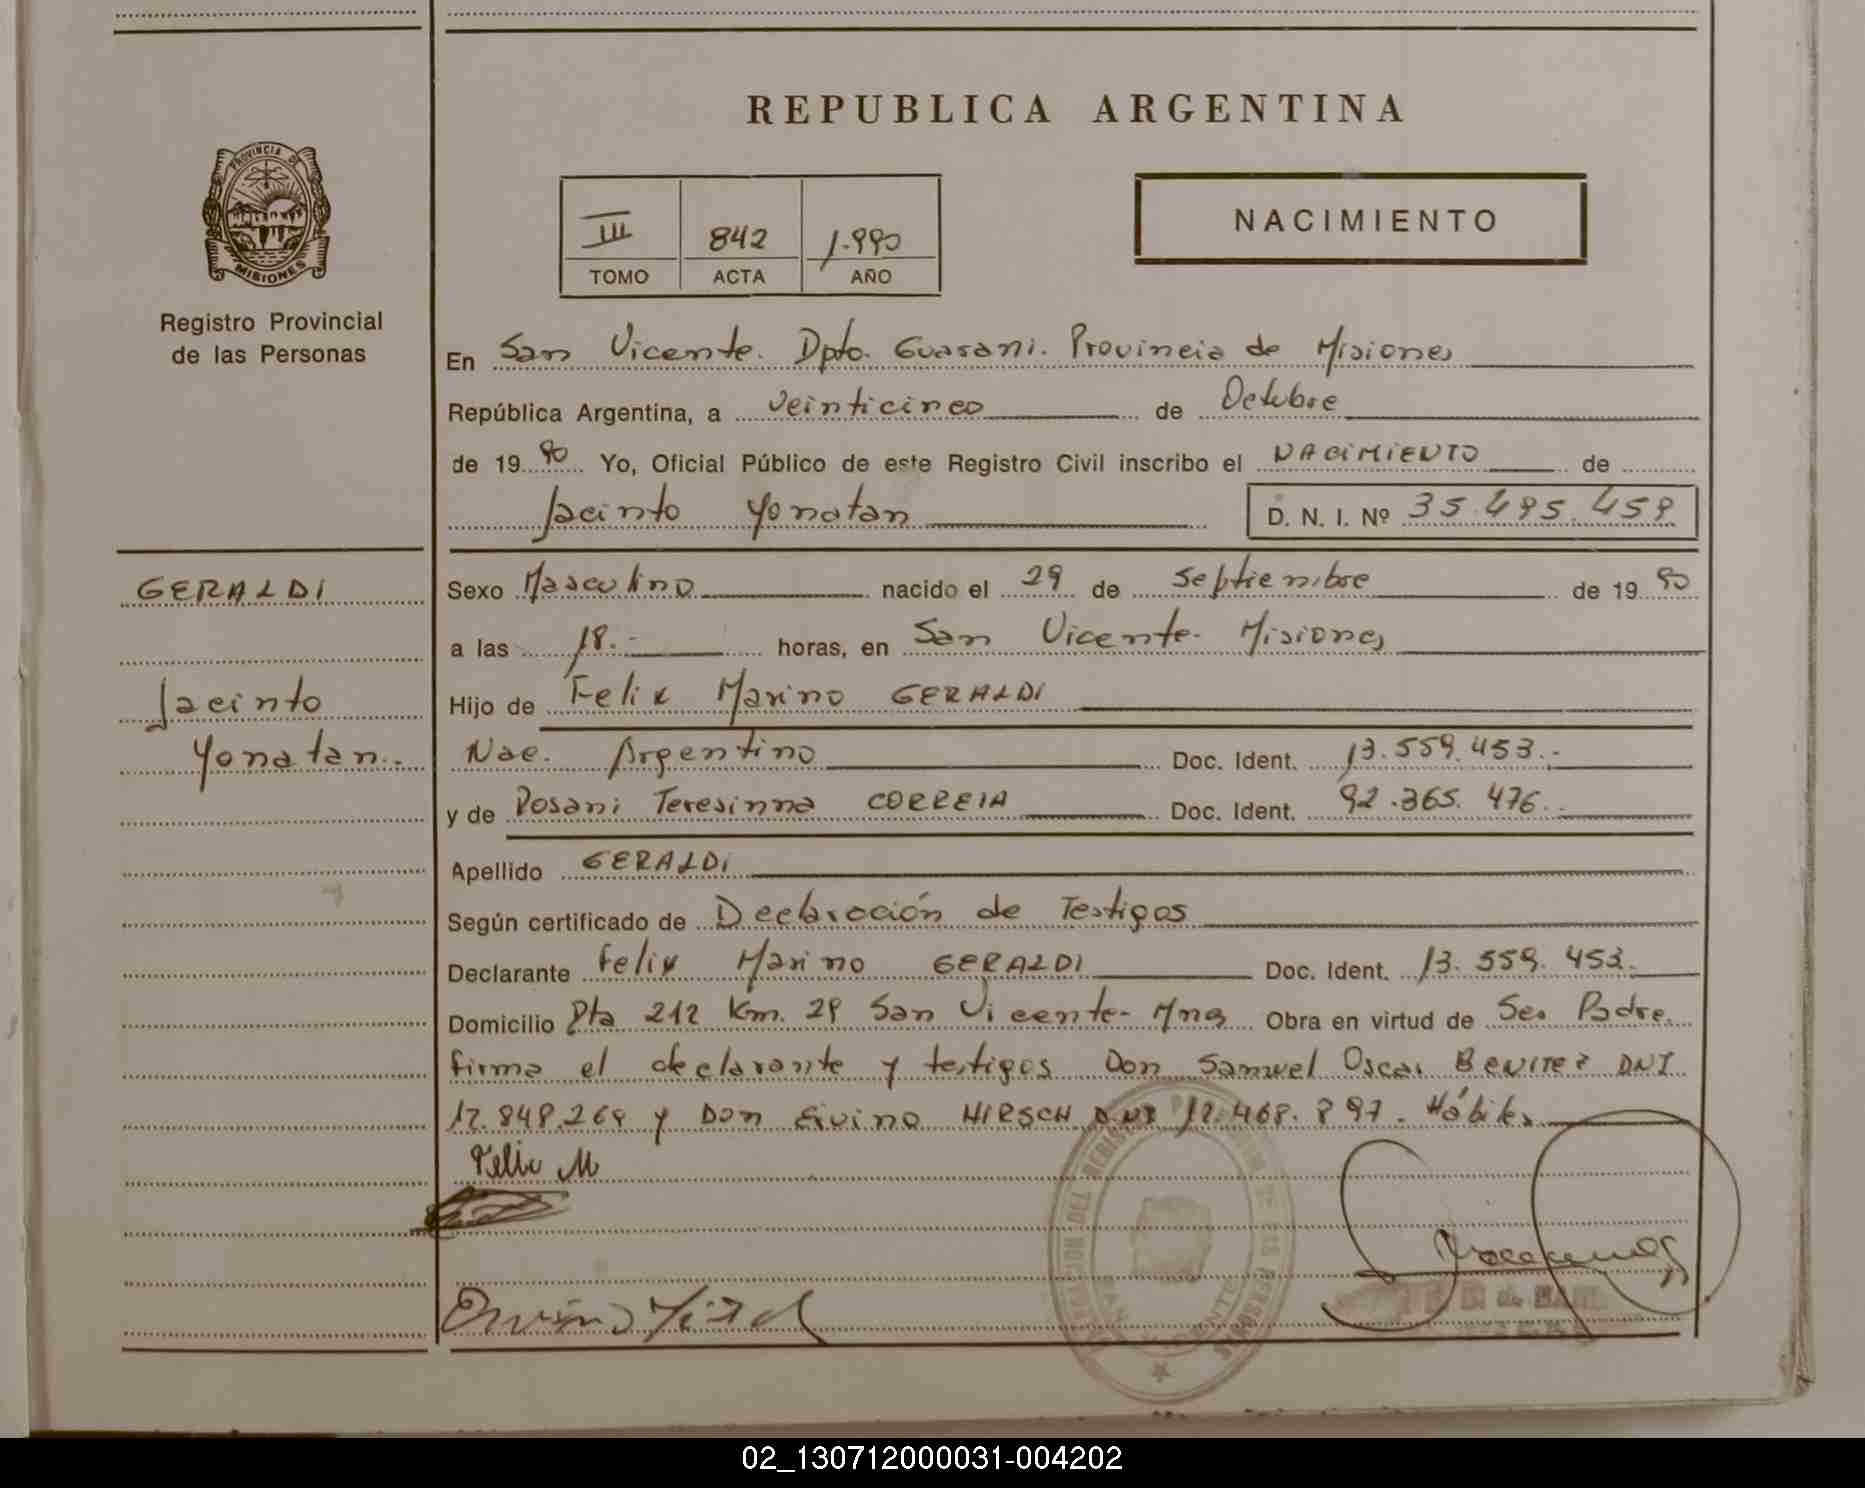 REPUBLICA ARGENTINA
PROVINCIA DE
MISIONES
Registro Provincial
de las Personas
III 842 1.990
TOMO ACTA AÑO
NACIMIENTO
En San Vicente. Dpto. Guarani. Provincia de Misiones
República Argentina, a veinticinco de Octubre
de 19 90 Yo, Oficial Público de este Registro Civil inscribo el NACIMIENTO de
Jacinto Yonatan D. N. I. Nº 35.495.459
GERALDI
Jacinto
Yonatan.-
Sexo Masculino nacido el 29 de Septiembre de 19 90
a las 18.- horas, en San Vicente- Misiones
Hijo de Felix Marino GERALDI
Nac. Argentino Doc. Ident. 13.559.453.-
y de Rosani Teresinna CORREIA Doc. Ident. 92.365.476.
Apellido GERALDI
Según certificado de Declaración de Testigos
Declarante Felix Marino GERALDI Doc. Ident. 13.559.453.
Domicilio Rta 212 Km. 29 San Vicente- Mnes Obra en virtud de Ser Padre.
firma el declarante y testigos Don Samuel Oscar BENITEZ DNI
17.848.269 y Don Eivino HIRSCH DNI 12.468.897. Hábiles
Felix M
SAN VICENTE
02_130712000031-004202